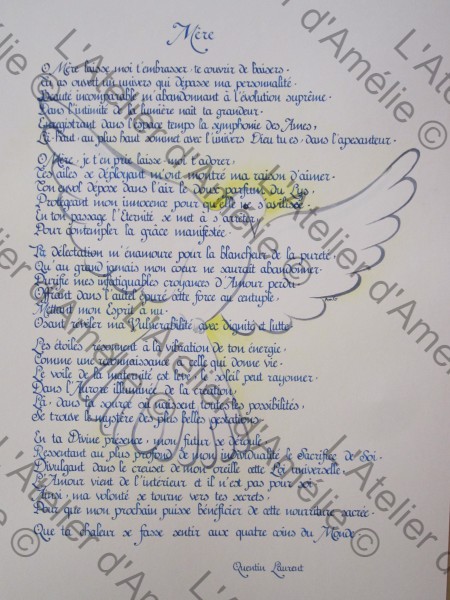 Mère
O Mère laisse moi t'embrasser, te couvrir de baisers.
Tu as ouvert un univers qui dépasse ma personnalité.
Beauté incomparable m'abandonnant à l'évolution suprême.
Dans l'intimité de la lumière naît ta grandeur.
Enregistrant dans l'espace temps la symphonie des Ames,
Là-haut, au plus haut sommet avec l'univers Dieu tu es, dans l'apesanteur.
O Mère, je t'en prie laisse moi t'adorer,
Tes ailes se déployant m'ont montré ma raison d'aimer.
Ton envol dépose dans l'air le doux parfum du Lys
Protégeant mon innocence pour qu'elle ne s'avilisse.
En ton passage l'éternité se met à s'arrêter
Pour contempler la grâce manifestée.
La délectation m'énamoure pour la blancheur de la pureté
Qu'au grand jamais mon cœur ne saurait abandonner.
Purifie mes infatiguables croyances d'Amour perdu
Offrant dans l'autel épuré cette force au centuple.
Mettant mon Esprit à nu.
Osant révéler ma Vulnérabilité avec dignité et lutte.
Les étoiles résonnent à la vibration de ton énergie.
Comme une reconnaissance à celle qui donne vie.
Le voile de la maternité est levé, le soleil peut rayonner.
Dans l'Aurore illuminée de la création
Là, dans la source où naissent toutes les possibilités,
Se trouve le mystère des plus belles gestations.
En ta Divine présence, mon futur se déroule,
Ressentant au plus profond de mon individualité le Sacrifice de Soi.
Divulgant dans le creuset de mon oreille cette Loi universelle,
L'Amour vient de l'intérieur et il n'est pas pour soi
Ainsi, ma volonté se tourne vers tes secrets.
Pour que mon prochain puisse bénéficier de cette nourriture sacrée.
Que ta chaleur se fasse sentir aux quatre coins du Monde.
Quentin Laurent
L'Atelier d'Amélie ©